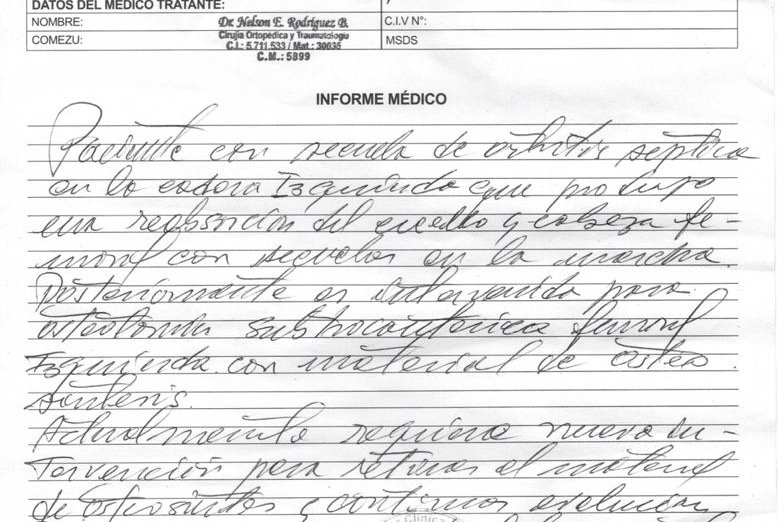 DATOS DEL MÉDICO TRATANTE:
NOMBRE: Dr. Nelson E. Rodríguez B. C.I.V N°:
Cirujía Ortopédica y Traumatología
COMEZU: C.I.: 5.711.533 / Mat.: 30035 MSDS
C.M.: 5899
INFORME MÉDICO
Paciente con secuela de artritis séptica
en la cadera Izquierda que produjo
una reabsorción del cuello y cabeza fe-
moral con secuelas en la marcha.
Posteriormente es intervenida para
osteotomia subtrocanterica femoral
Izquierda con material de osteo
síntesis.
Actualmente requiere nueva in-
tervención para retirar el material
de osteosíntesis y continuar evolución
Clínica